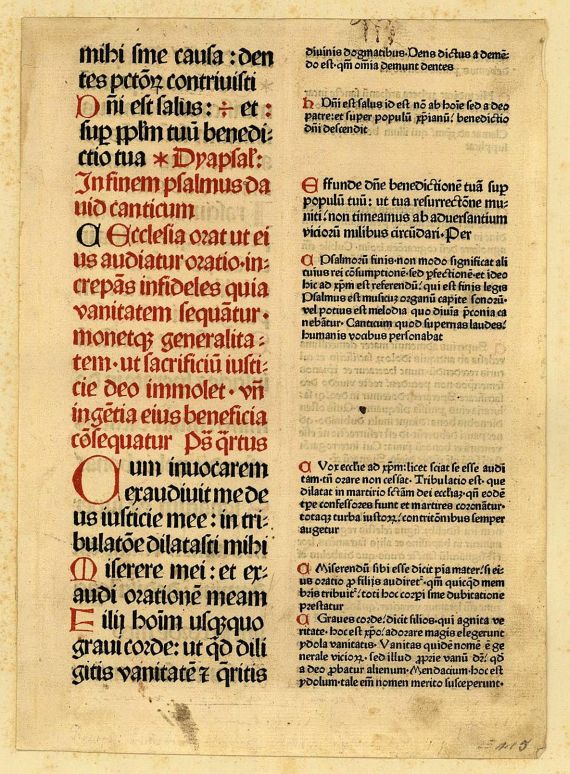 mihi sine causa : den
tes pctōꝝ contrivisti
Dñi est salus : ÷ et :
suꝑ ꝓplm̄ tuū benedi-
ctio tua * Dyapsal̄:
In finem psalmus da
uid canticum
¶ Ecclesia orat ut ei
us audiatur oratio· in-
crepās infideles quia
vanitatem sequātur·
monetqꝫ generalita-
tem· ut sacrificiū iusti-
cie deo immolet· vn̄
ingētia eius beneficia
cōsequatur Ps̄ q̄rtus
Cum inuocarem
exaudiuit me de
us iusticie mee : in tri-
bulatōe dilatasti mihi
Miserere mei : et ex-
audi orationē meam
Filij hoīm usqꝫquo
graui corde: ut qͥd dili
gitis vanitatē ⁊ q̄ritis
diuinis dogmatibus· Dens dictus a demē-
do est· qm̄ oīa demunt dentes
Dñi est salus id est nō ab hoīe sed a deo
patre: et super populū xp̄ianū: benedictio
dn̄i descendit
Effunde dn̄e benedictionē tuā suꝑ
populū tuū: ut tua resurrectōne mu-
niti: non timeamus ab aduersantium
vicioꝝ milibus circūdari· Per
¶ Psalmorū finis· non modo significat ali
cuius rei cōsumptionē· sed ꝑfectionē· et ideo
hic ad xp̄m est referendū: qui est finis legis
Psalmus est musicuꝫ organū capite sonorū·
vel potius est melodia quo diuīa p̄conia ca
nebātur· Canticum quod supernas laudes:
humanis vocibus personabat
¶ Vox eccl̄ie ad xp̄m: licet sciat se esse audi
tam· tn̄ orare non cessat· Tribulatio est· que
dilatat in martirio sc̄tām dei eccliaꝫ· qn̄ eodē
tp̄e confessores fiunt et martires coronātur·
totaqꝫ turba iustoꝝ: contritōnibus semper
augetur
¶ Miserendū sibi esse dicit pia mater: si ei-
us oratio ꝓ filijs audiretᵘ· qm̄ quicqͥd mem
bris tribuitᵘ: toti hoc corpi sine dubitatione
prestatur
¶ Graues corde: dicit filios· qui agnita ve
ritate· hoc est xp̄o: adorare magis elegerunt
ydola vanitatis· Vanitas quidē nomē ē ge
nerale vicioꝝ· sed illud ꝓprie vanū dr̄: qd̄
a deo ꝓbatur alienum· Mendacium· hoc est
ydolum· tale em̄ nomen merito susceperunt·